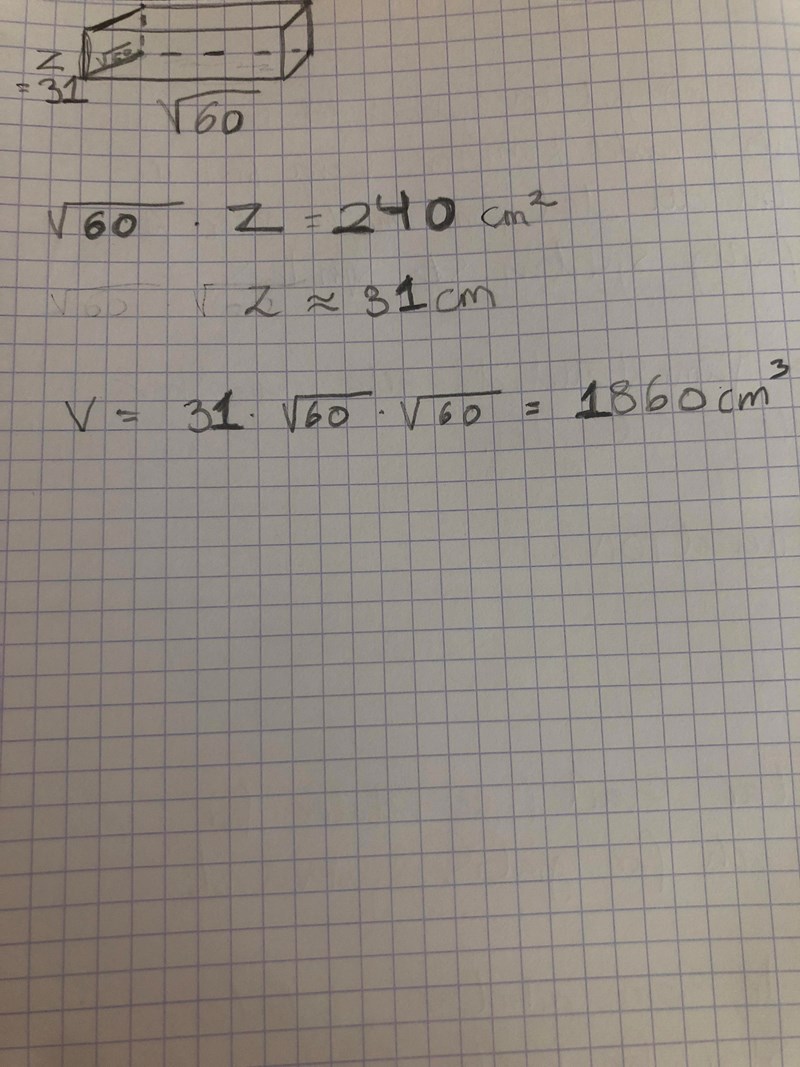 z
= 31
√60
√60
√60 · z = 240 cm²
√60 √ z ≈ 31 cm
V = 31 · √60 · √60 = 1860 cm³